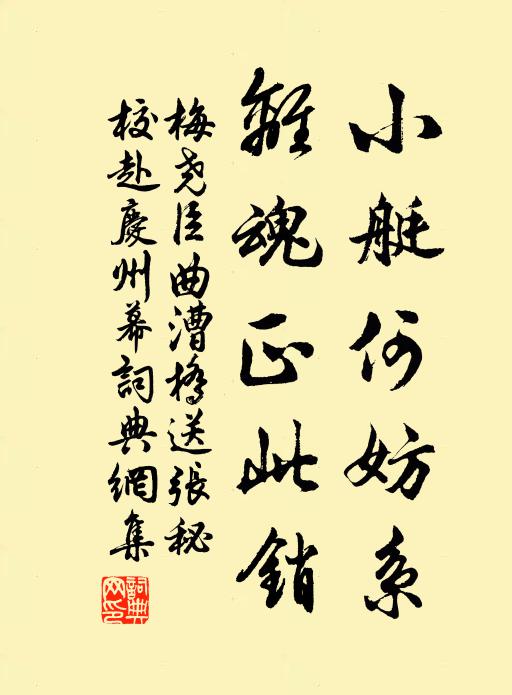 小艇何妨系
離魂正此銷
梅尧臣曲漕橋送張秘
校赴慶州幕詞典網集
詞典網印